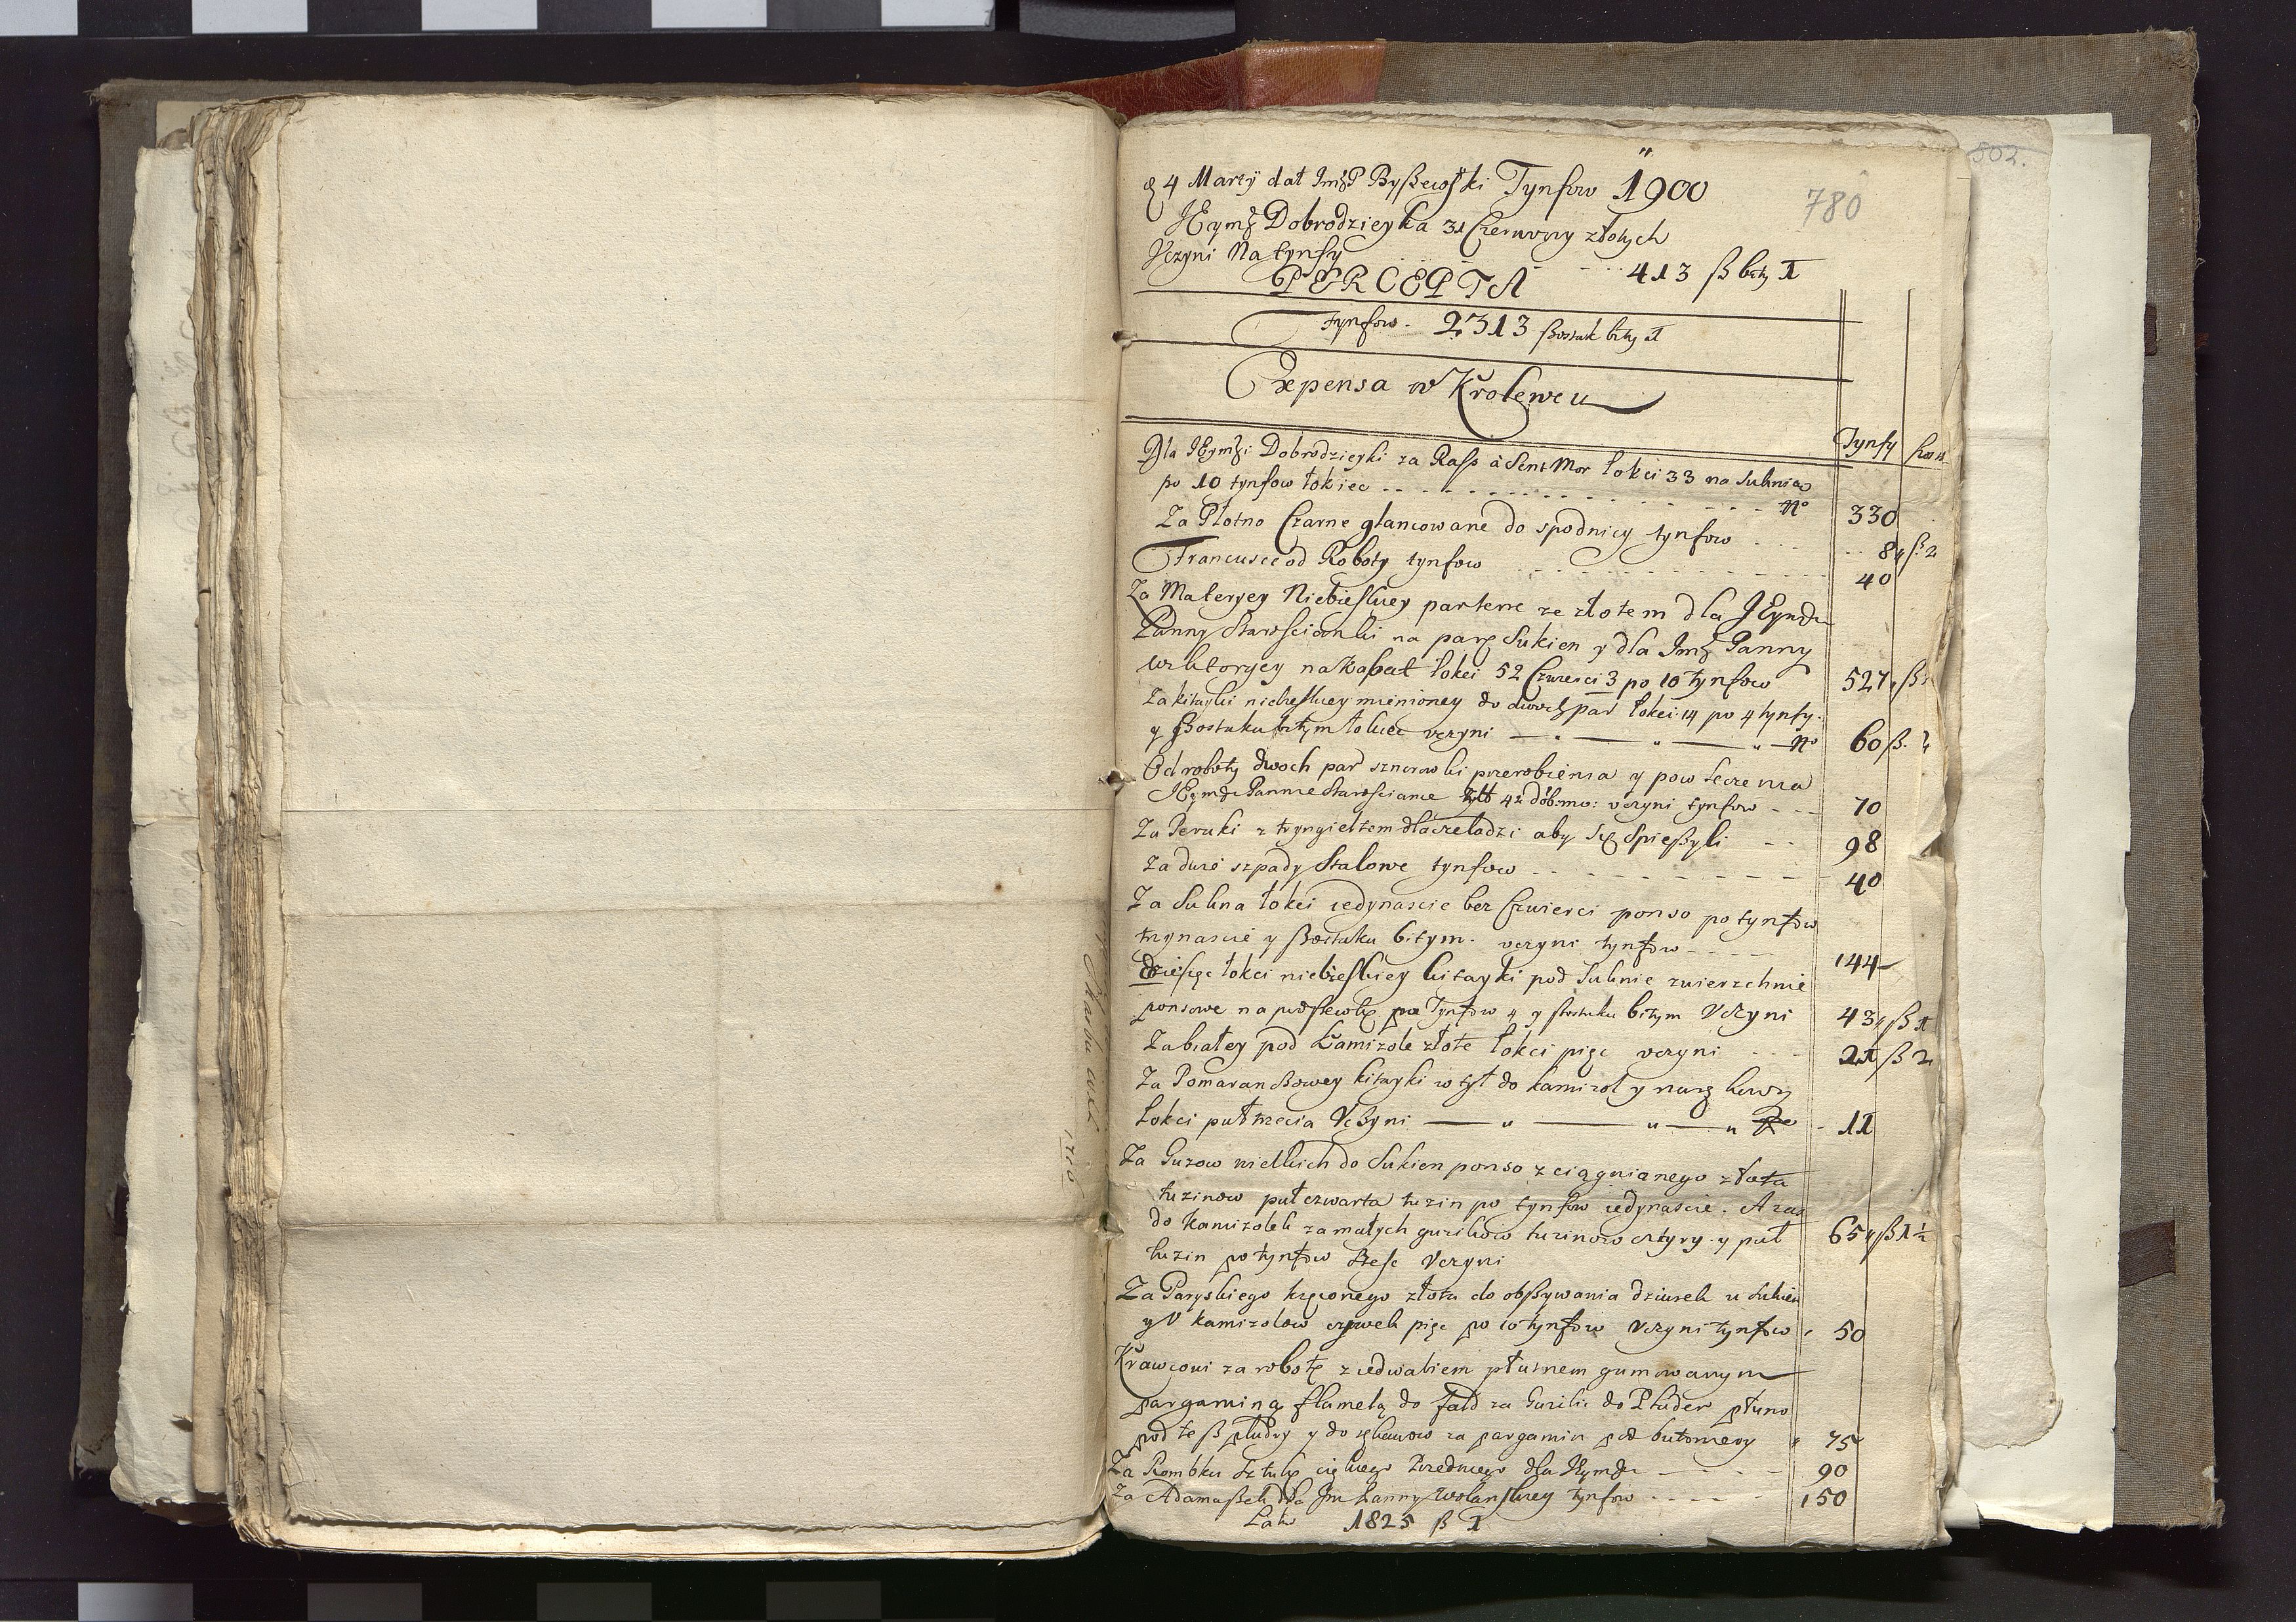 502.
780
4 Martÿ dat ImP Byßewski Tynfow 1900
JEymć Dobrodzieyka 31 Czerwony złotych
Vczyni Na tynfy - - - 413 ß bity 1
PERCEPTA
tynfow. 2313 ßostak bity 1
Expensa w Krolewcu
Tynfy
Dla JEymći Dobrodzieyki za Raſs à Sent Mor Łokci 33 na Suknią
po 10 tynfow łokiec - - - No 330
Za Płotno Czarne glancowane do spodnicy tynfow - - - 8 ß 2
Francusce od Roboty tynfow - - - 40
Za Materyey Niebieskiey parterre ze złotem dla JEymći
Panny Starościanki na parę Sukien y dla Imć Panny
Wiktoryey na Kabat łokci 52 Czwierci 3 po 10 tynfow 527 ß
Za kitayki niebieskiey mienioney do dwoch par łokci 14 po 4 tynfy
y ßostaku bitym łokiec vczyni — " — " — " — No 60 ß.
Od roboty dwoch par sznurowki przerobienia y powleczenia
JEymći Pannie Starościance 42 vczyni tynfow - - 70
Za Peruki z tryngieltem dla czeladzi aby się Spießyli - - 98
Za dwie szpady Stalowe tynfow - - - 40
Za Sukna łokci iedynascie bez Czwierci ponso po tynfow
trzynascie y ßostaku bitym. vczyni tynfow - - - 144
dziesięc łokci niebieskiey kitayki pod Suknie zwierzchnie
ponsowe na podßewkę po Tynfow 4 y ßostaku bitym Vczyni 43 ß 1
Za białey pod Kamizole złote łokci pięc vczyni - - - 21 ß 2
Za Pomaranßowey kitayki w tył do kamizol y na rękawy
łokci puł trzecia Vczyni — " — " — " 11
Za Guzow wielkich do Sukien ponso z ciągnianego złota
tuzinow puł czwarta tuzin po tynfow iedynascie. A zas
do Kamizolek za małych guzikow tuzinow cztyry y puł 65 ß 1½
tuzin po tynfow ßesc Vczyni
Za Paryskiego kręconego złota do obßywania dziurek u Sukien
y V kamizolow cywek pięc po 10 tynfow Vczyni tynfow 50
Krawcowi za robotę z iedwabiem płutnem gumowanym
pargaminą flanelą do fałd za Guziki do Pluder płutno
pod teß pludry y do rękawow za pargamin pod butomery 75
Za Rombku Sztukę cienkiego Szredniego dla JEymći - - - 90
Za Adamaßek dla Jm Panny Wolanskiey tynfow - - - 150
Latus 1825 ß 1